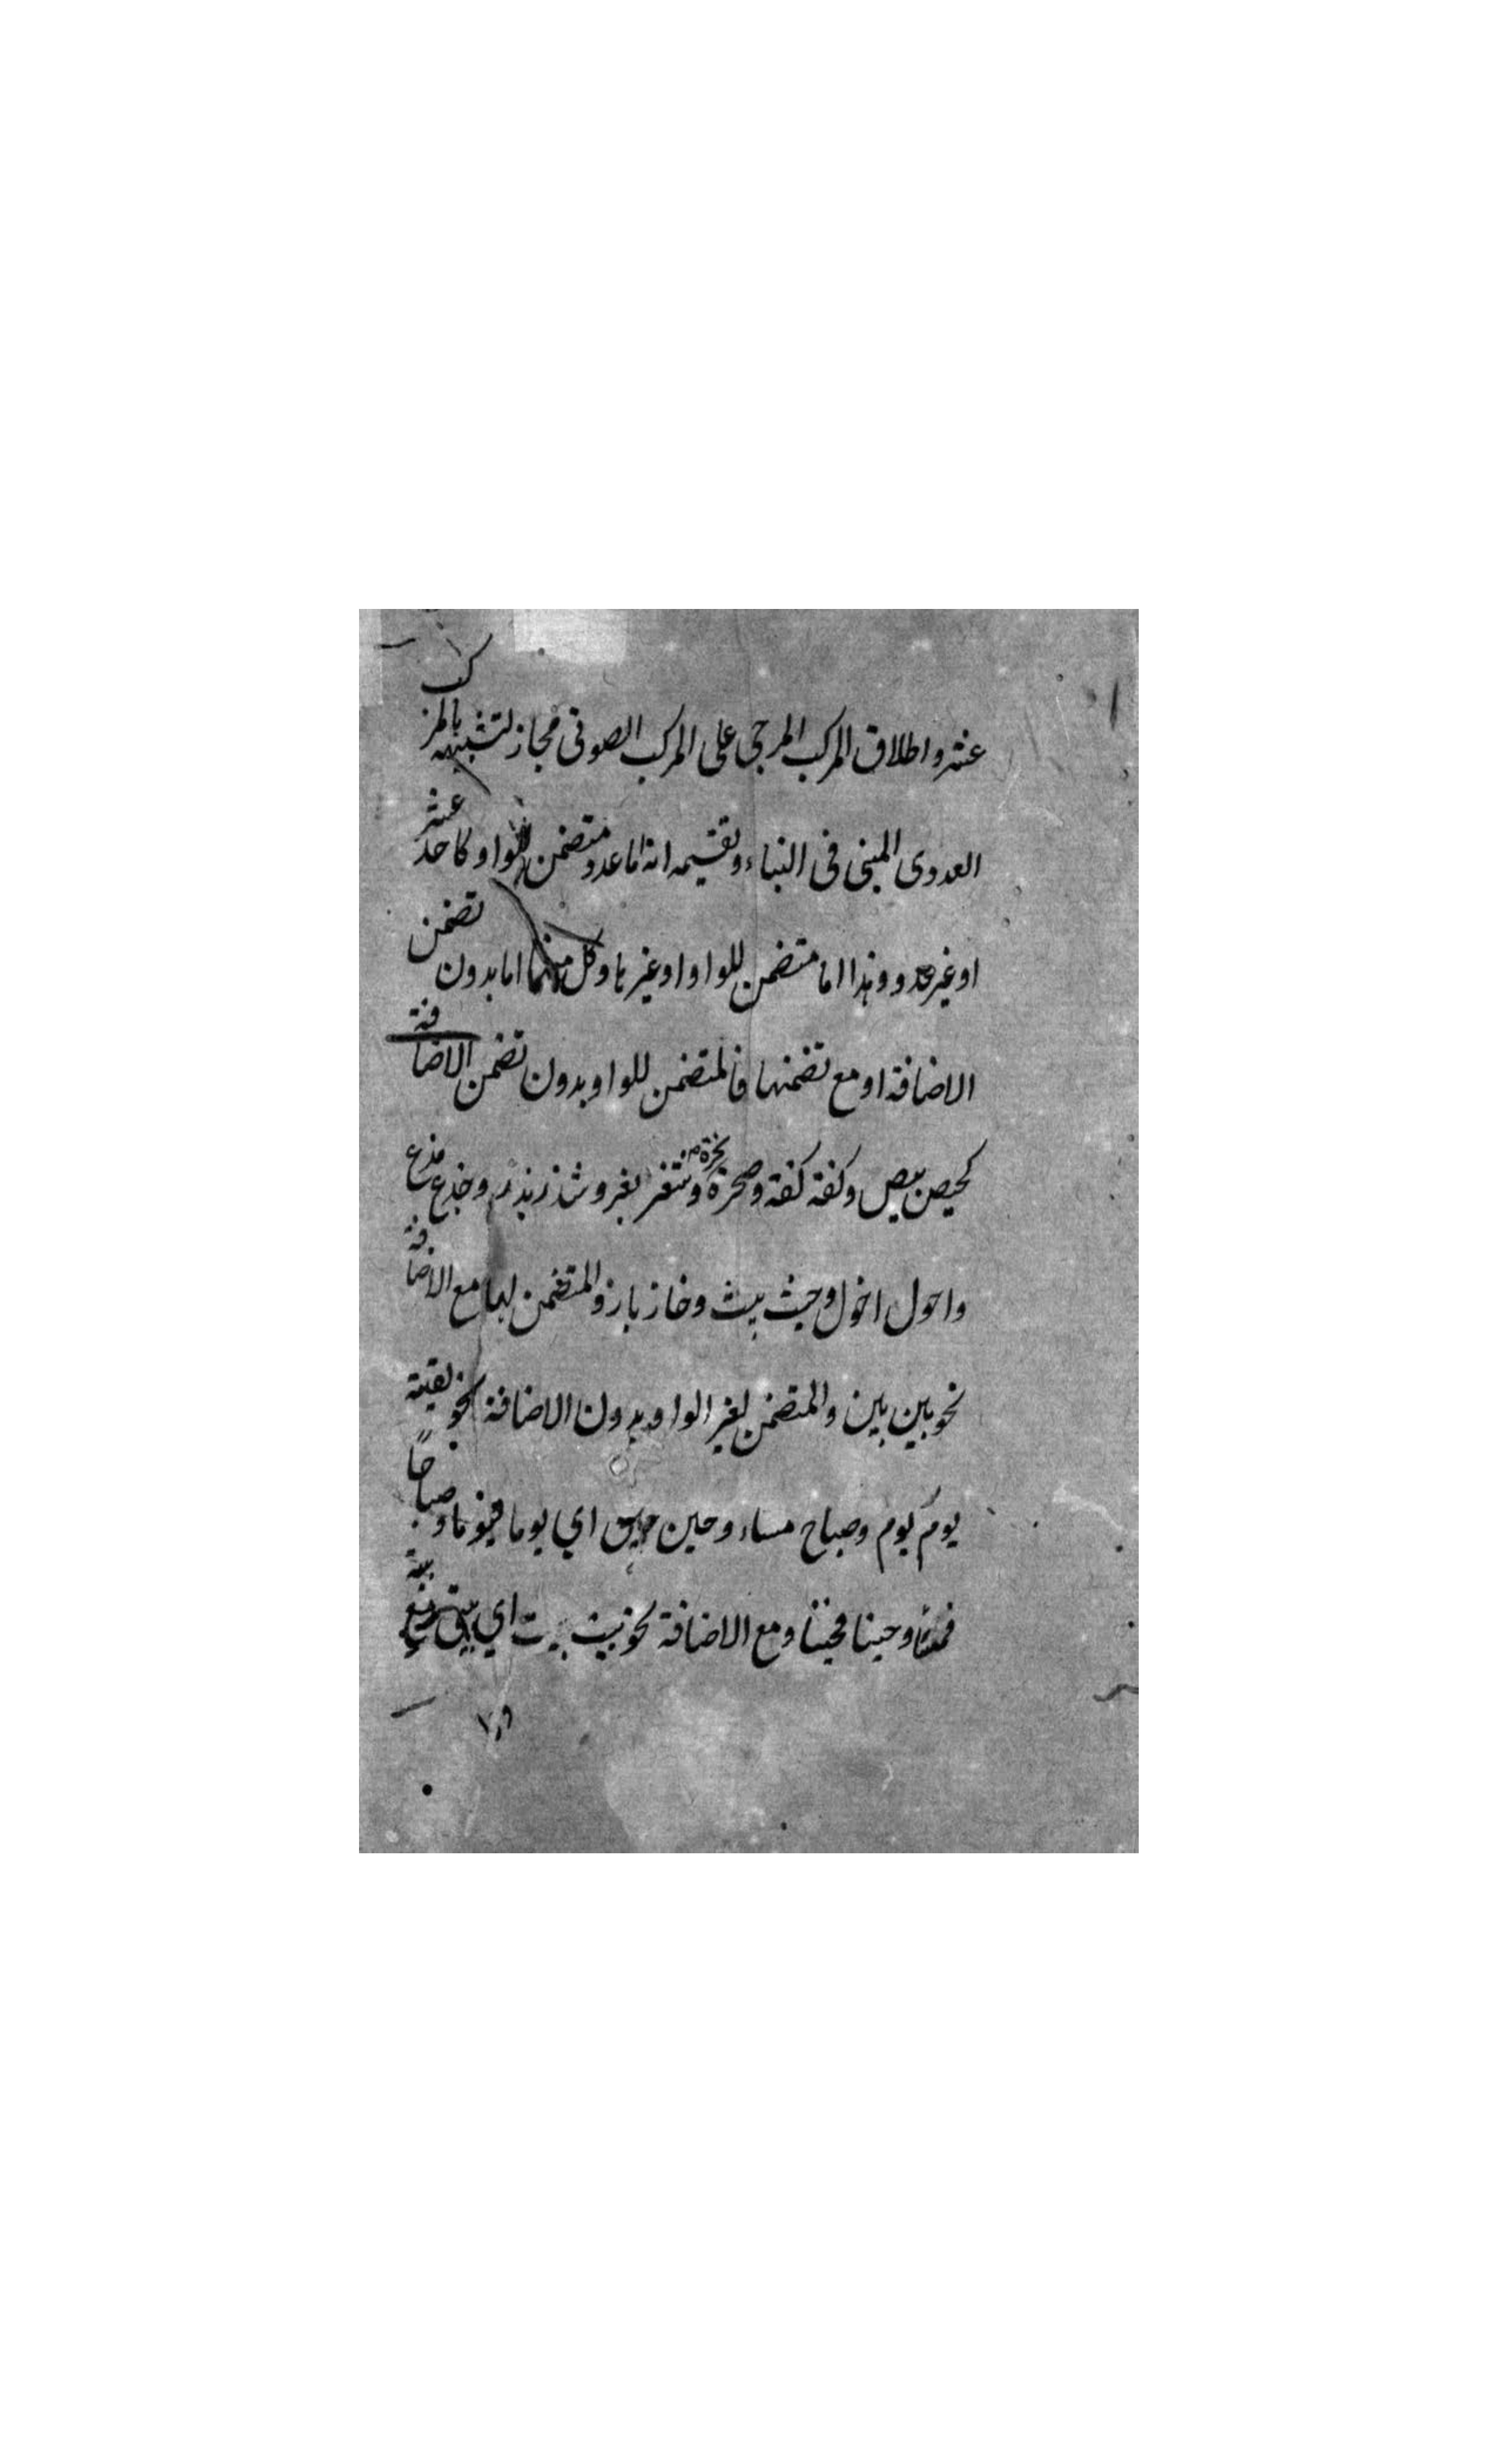 عشر واطلاق المركب المزجي على المركب الصوتى مجاز لتشبيهه بالمركب
العددى المبنى فى البناء وتقسيمه انه اما عدد متضمن للواو كاحد عشر
او غير عدد وهذا اما متضمن للواو او غيرها وكل منهما اما بدون تضمن
الاضافة او مع تضمنها فالمتضمن للواو بدون تضمن الاضافة
كحيص بيص وكفة كفة وصحرة بحرة وشغر بغر وشذر بذر وخذع مذع
واحول اخول وحيث بيث وخاز باز والمتضمن لها مع الاضافة
نحو بين بين والمتضمن لغير الواو بدون الاضافة نحو لقيته
يوم يوم وصباح مساء وحين اي يوما فيوما وصباحًا
فمساءً وحينا فحينا ومع الاضافة نحو بيت بيت اي